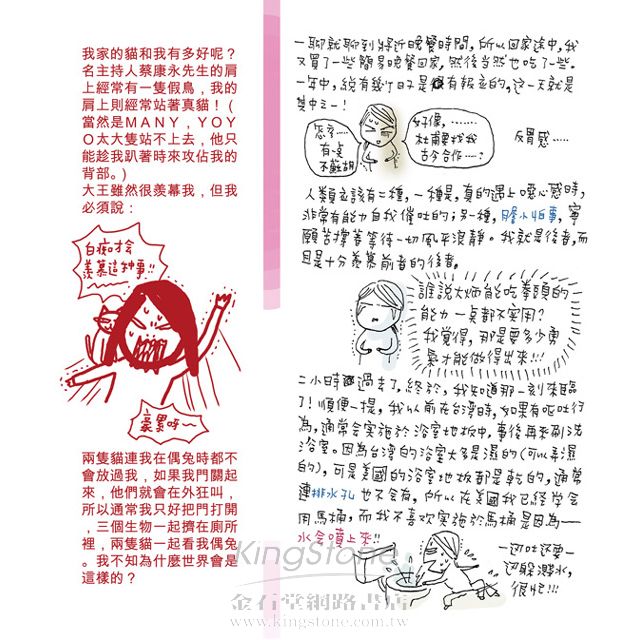 我家的貓和我有多好呢？
名主持人蔡康永先生的肩
上經常有一隻假鳥，我的
肩上則經常站著真貓！（
當然是MANY，YOY
O太大隻站不上去，他只
能趁我趴著時來攻佔我的
背部。）
大王雖然很羨慕我，但我
必須說：
白痴才會
羨慕這種事!!
豪累呀～
兩隻貓連我在偶兔時都不
會放過我，如果我門關起
來，他們就會在外狂叫，
所以通常我只好把門打開
，三個生物一起擠在廁所
裡，兩隻貓一起看我偶兔
。我不知為什麼世界會是
這樣的？
一聊就聊到將近晚餐時間，所以回家途中，我
又買了一些簡易晚餐回家，然後当然也吃了一些。
一年中，総有幾个日子是没有報应的，这一天就是
其中之一！
怎麼……
有桌
不蘇胡
好像，……
杜南要找我
古今合作……？
反胃感……
人類应該有二種，一種是，真的遇上噁心感時，
非常有能力自我催吐的；另一種，膽小怕事，寧
願苦撐著等待一切風平浪靜。我就是後者，而
且是十分羨慕前者的後者。
誰說大炳能吃拳頭的
能力一桌都不実用？
我覚得，那是要多少勇
氣才能做得出來!!!
二小時過去了，終於，我知道那一刻來臨
了！順便一提，我以前在台湾時，如果有呕吐行
為，通常会実施於浴室地板中，事後再來刷洗
浴室。因為台湾的浴室大多是濕的（可以弄濕
的），可是美國的浴室地板都是乾的，通常
連排水孔也不会有，所以在美國我已経学会
用馬桶，而我不喜欢実施於馬桶是因為——
水会噴上來!!
一边吐还要一
边躲濺水，
很忙!!!
KingStone
金石堂網路書店
www.kingstone.com.tw